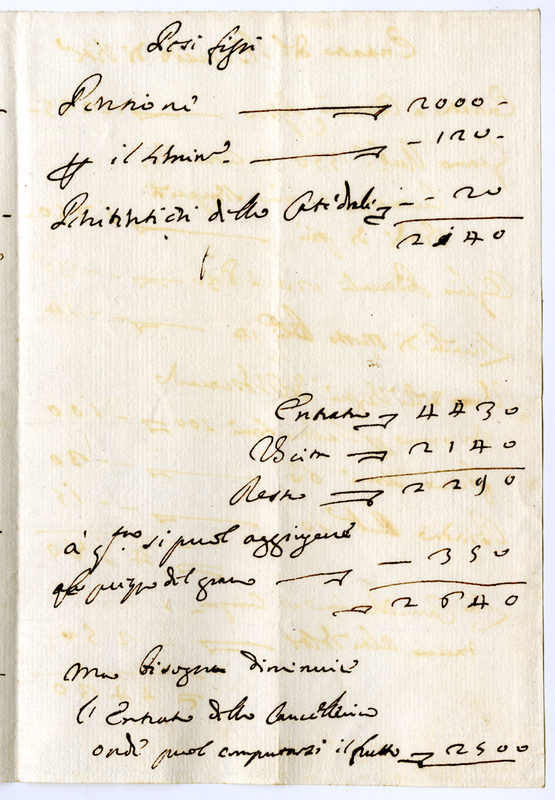 Pesi fissi
Pensione 2000 -
il - 120 -
Penitentieri della Catedrale - - 20
2140
Entrata 4430
Uscita 2140
Resta 2290
à q.sto si puol aggiugnere
prezzo del grano - 350
2640
ma bisogna diminuire
l'Entrata della Cancelleria
onde puol computarsi il frutto 2500